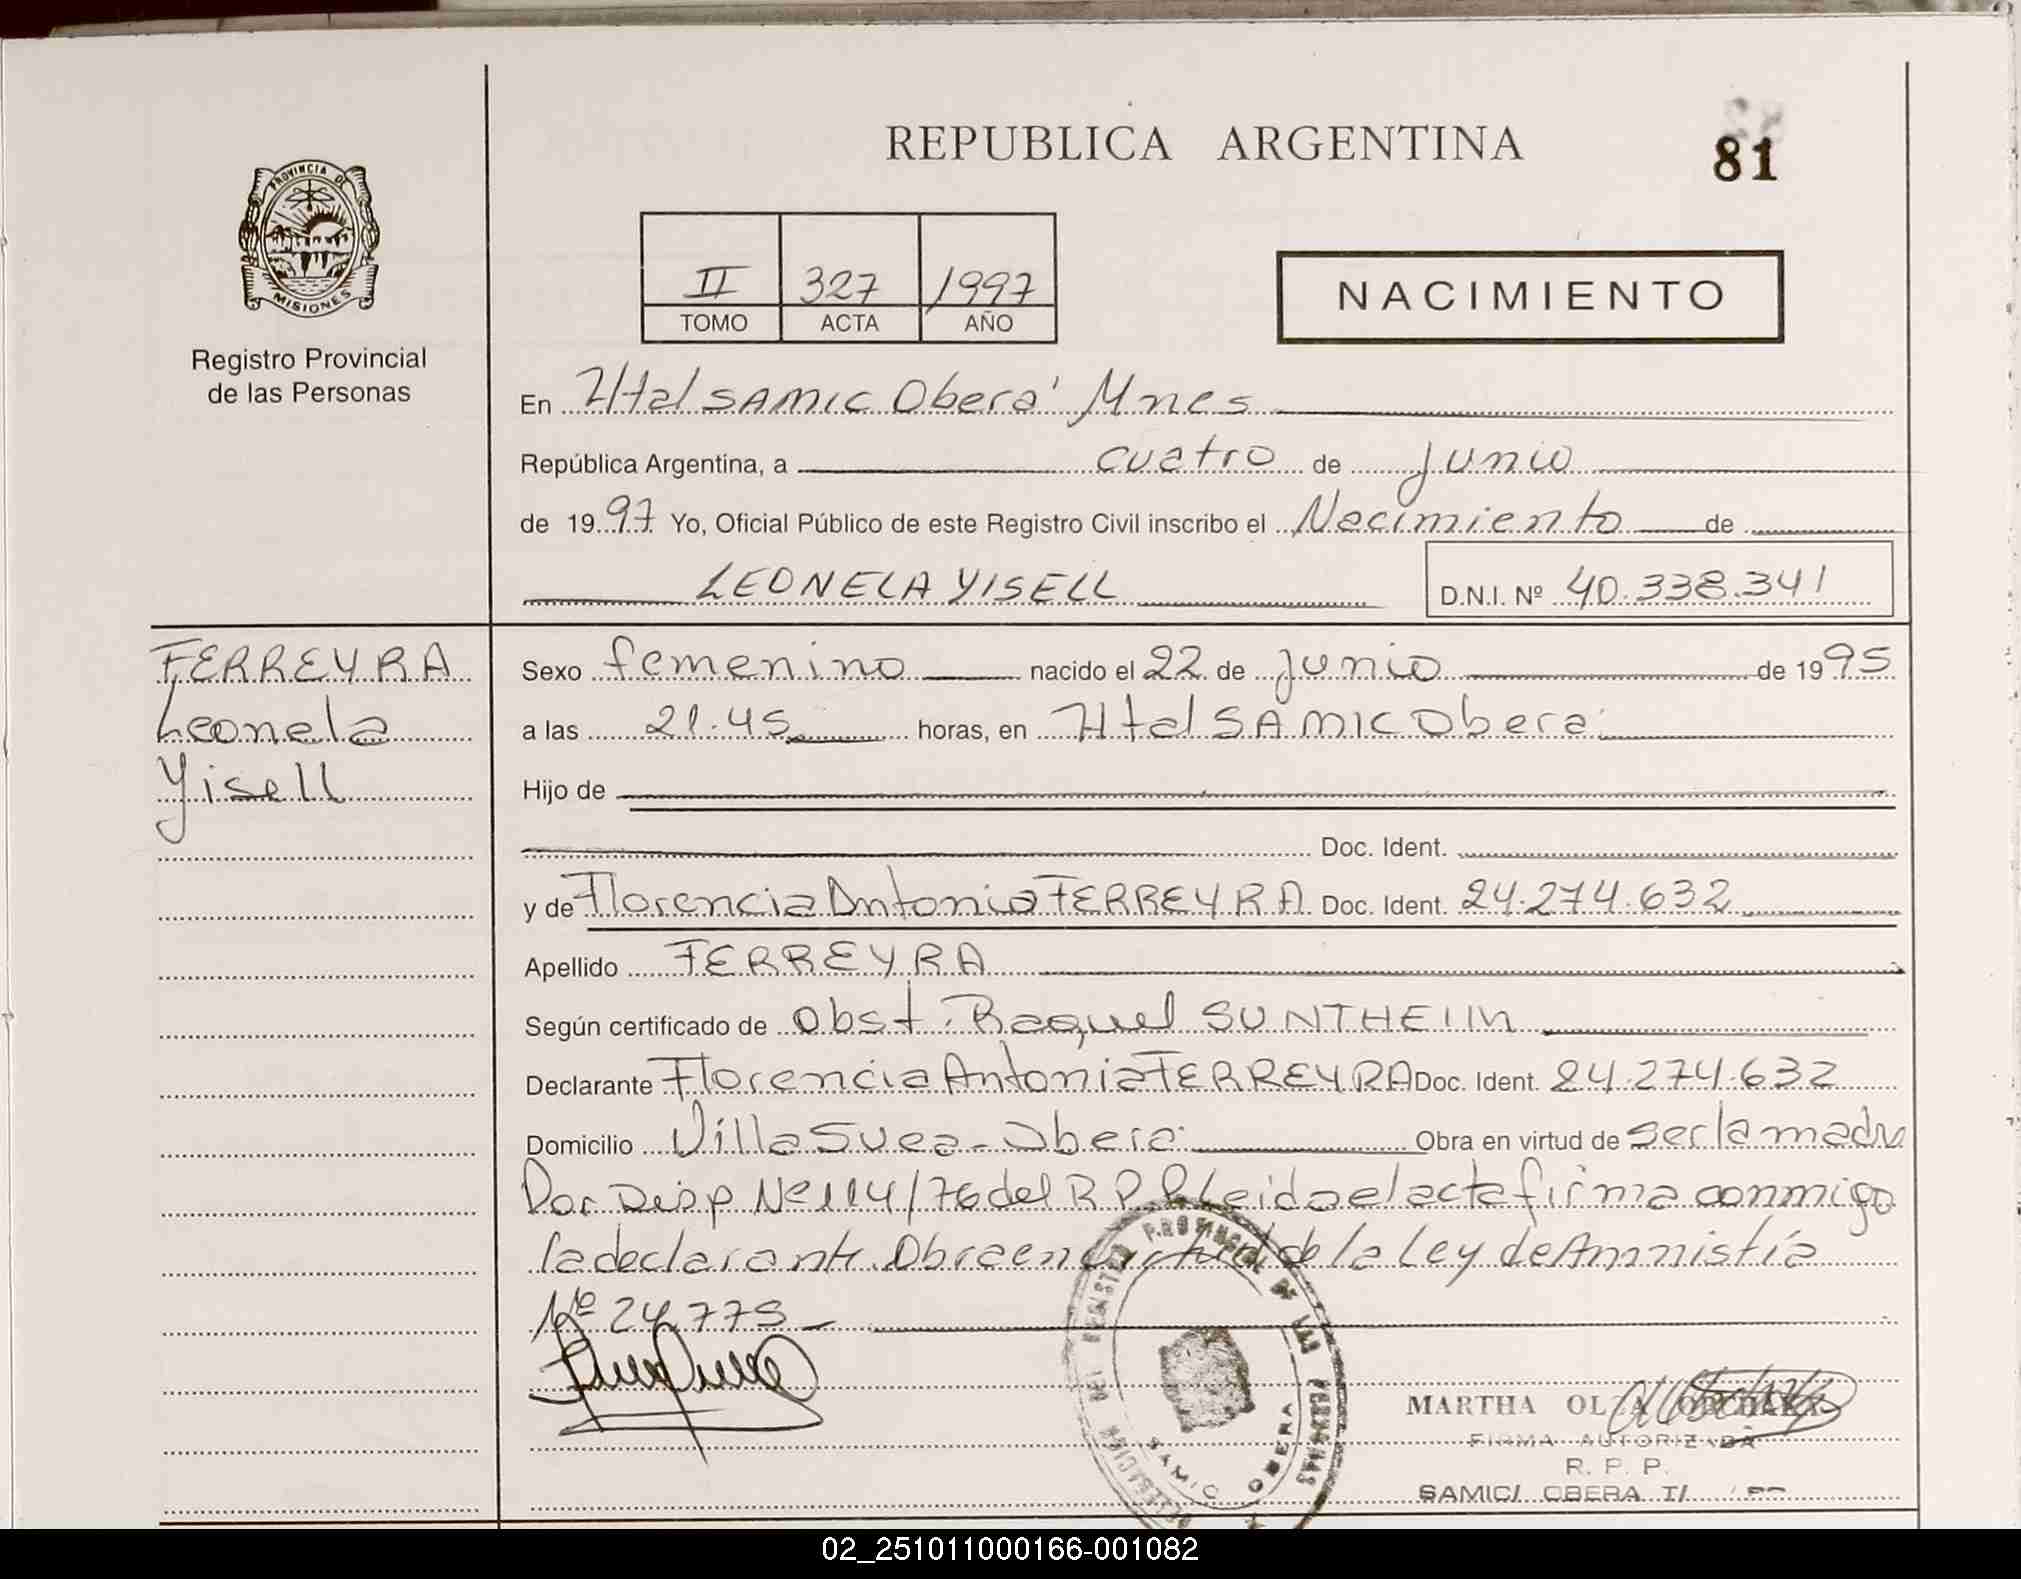 REPUBLICA ARGENTINA
81
PROVINCIA DE
MISIONES
Registro Provincial
de las Personas
II 327 1997
TOMO ACTA AÑO
NACIMIENTO
En Htal SAMIC Oberá Mnes
República Argentina, a cuatro de junio
de 1997 Yo, Oficial Público de este Registro Civil inscribo el Nacimiento de
LEONELA YISELL D.N.I. Nº 40.338.341
FERREYRA
Leonela
Yisell
Sexo femenino nacido el 22 de junio de 1995
a las 21.45 horas, en Htal SAMIC Oberá
Hijo de
Doc. Ident.
y de Florencia Antonia FERREYRA Doc. Ident. 24.274.632
Apellido FERREYRA
Según certificado de Obst. Raquel SUNTHEIM
Declarante Florencia Antonia FERREYRA Doc. Ident. 24.274.632
Domicilio Villa Svea - Oberá Obra en virtud de ser la madre
Por Disp Nº 114/76 del R P P Leida el acta firma conmigo
la declarante. Obra en virtud de la Ley de Amnistía
Nº 24.775
DELEGACION DEL REGISTRO PROVINCIAL DE LAS PERSONAS
SAMIC OBERA
MARTHA
FIRMA AUTORIZADA
R. P. P.
SAMIC/ OBERA
02_251011000166-001082